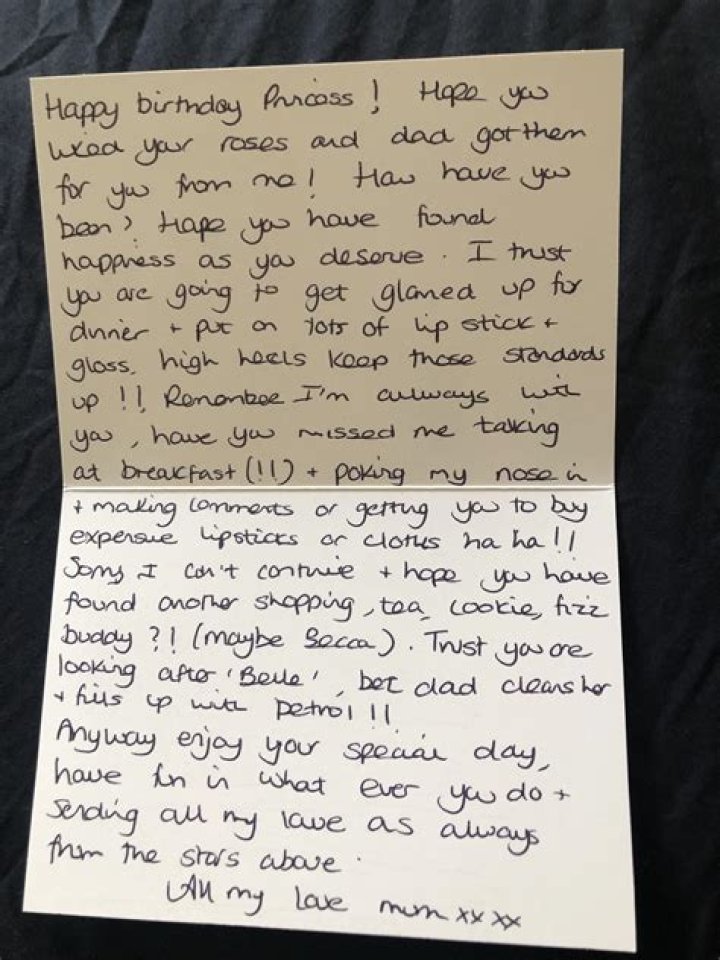 Happy birthday Princess! Hope you
liked your roses and dad got them
for you from me! How have you
been? Hope you have found
happiness as you deserve. I trust
you are going to get glamed up for
dinner + put on lots of lip stick +
gloss, high heels keep those standards
up !!, Remember I'm always with
you, have you missed me talking
at breakfast (!!) + poking my nose in
+ making comments or getting you to buy
expensive lipsticks or clothes ha ha!!
Sorry I can't continue + hope you have
found another shopping, tea, cookie, fizz
buddy ?! (maybe Becca). Trust you are
looking after 'Belle', bet dad cleans her
+ fills up with petrol !!
Anyway enjoy your special day,
have fun in what ever you do +
sending all my love as always
from the stars above.
All my love mum xx xx